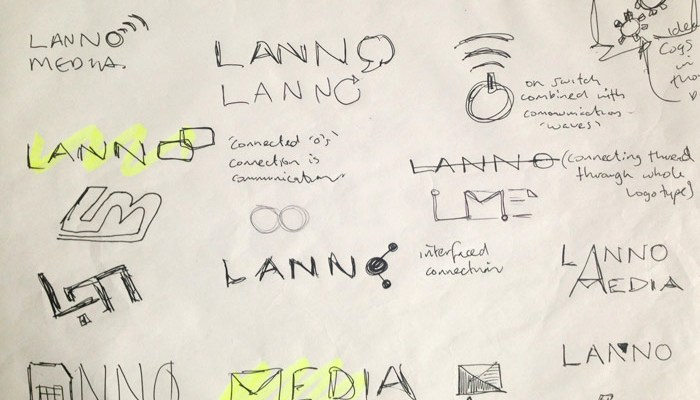 LANNO
MEDIA.
LANNO
LANNO
on switch
combined with
communication
'waves'
idea
Cogs
in
LANNO
'connected 'o's'
connection is
communication
LANNO
(connecting thread
through whole
logotype)
LM
LANNO
interfaced
connection
LANNO
MEDIA
LANNO
NNO
MEDIA